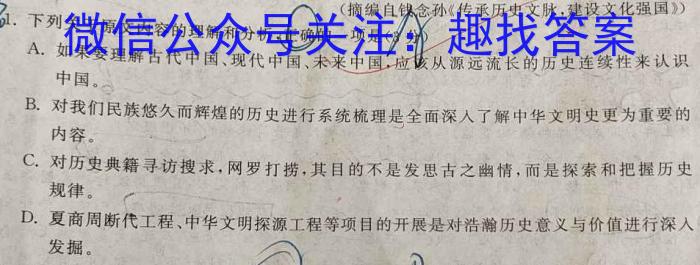 (摘编自钱念孙《传承历史文脉,建设文化强国》)
1. 下列
微信公众号关注:趣找答案
A. 如果要理解古代中国、现代中国、未来中国,应该从源远流长的历史连续性来认识
中国。
B. 对我们民族悠久而辉煌的历史进行系统梳理是全面深入了解中华文明史更为重要的
内容。
C. 对历史典籍寻访搜求,网罗打捞,其目的不是发思古之幽情,而是探索和把握历史
规律。
D. 夏商周断代工程、中华文明探源工程等项目的开展是对浩瀚历史意义与价值进行深入
发掘。